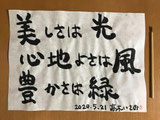 美しさは光
心地よさは風
豊かさは緑
2020.5.21